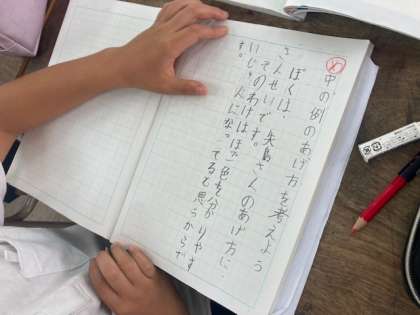 め 中の例のあげ方を考えよう
ぼくは、矢島さんのあげ方に
さんせいです。
そのわけはほご色を分かりやす
いじゅんになってると思うからで
す。